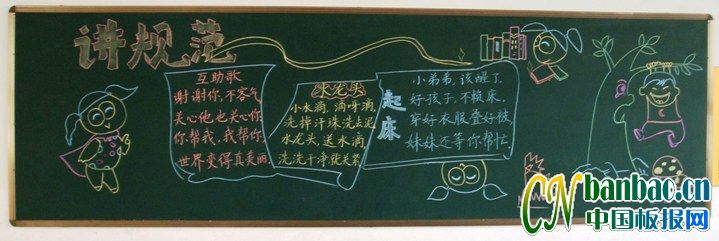 讲规范
互助歌
谢谢你,不客气
关心他也关心你
你帮我,我帮你,
世界变得真美丽.
水龙头
小水滴,滴呀滴,
洗掉汗珠洗去泥
水龙头,送水滴,
洗洗干净就关紧
起床
小弟弟,该醒了,
好孩子,不赖床.
穿好衣服叠好被
妹妹还等你帮忙.
CNbanbao.cn
中国板报网